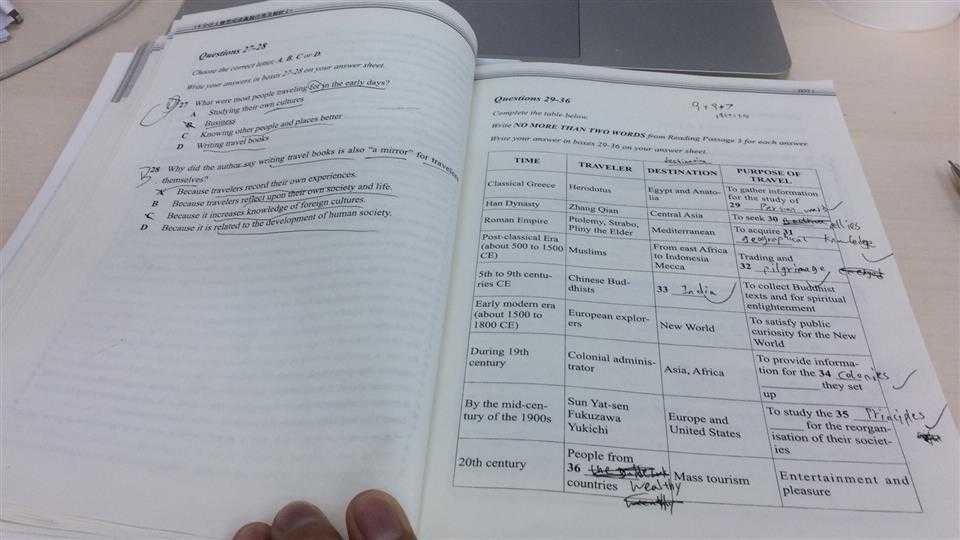 Questions 27-28
Choose the correct letter, A, B, C or D.
Write your answers in boxes 27-28 on your answer sheet.
27 What were most people traveling for in the early days?
A Studying their own cultures
B Business
C Knowing other people and places better
D Writing travel books
B 28 Why did the author say writing travel books is also "a mirror" for travelers
themselves?
A Because travelers record their own experiences.
B Because travelers reflect upon their own society and life.
C Because it increases knowledge of foreign cultures.
D Because it is related to the development of human society.
Questions 29-36
9+9+7
Complete the table below.
Write NO MORE THAN TWO WORDS from Reading Passage 3 for each answer.
Write your answers in boxes 29-36 on your answer sheet.
destination
TIME TRAVELER DESTINATION PURPOSE OF
TRAVEL
Classical Greece Herodotus Egypt and Anato-
lia
To gather information
for the study of
29 Persian wars
Han Dynasty Zhang Qian Central Asia To seek 30 allies
Roman Empire Ptolemy, Strabo,
Pliny the Elder
Mediterranean To acquire 31
geographical knowledge
Post-classical Era
(about 500 to 1500
CE)
Muslims
From east Africa
to Indonesia
Mecca
Trading and
32 pilgrimage
5th to 9th centu-
ries CE
Chinese Bud-
dhists
33 India
To collect Buddhist
texts and for spiritual
enlightenment
Early modern era
(about 1500 to
1800 CE)
European explor-
ers
New World
To satisfy public
curiosity for the New
World
During 19th
century
Colonial adminis-
trator
Asia, Africa
To provide informa-
tion for the 34 colonies
they set
up
By the mid-cen-
tury of the 1900s
Sun Yat-sen
Fukuzawa
Yukichi
Europe and
United States
To study the 35 principles
for the reorgan-
isation of their societ-
ies
20th century
People from
36
countries wealthy
Mass tourism
Entertainment and
pleasure